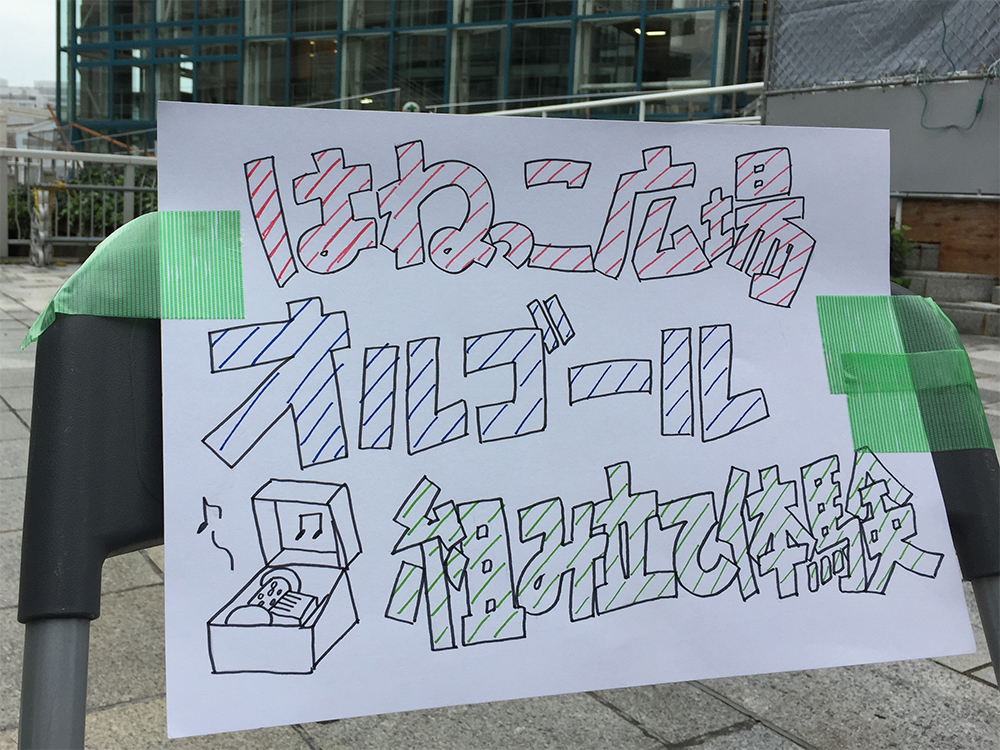 はねっこ広場
オルゴール
組み立て体験